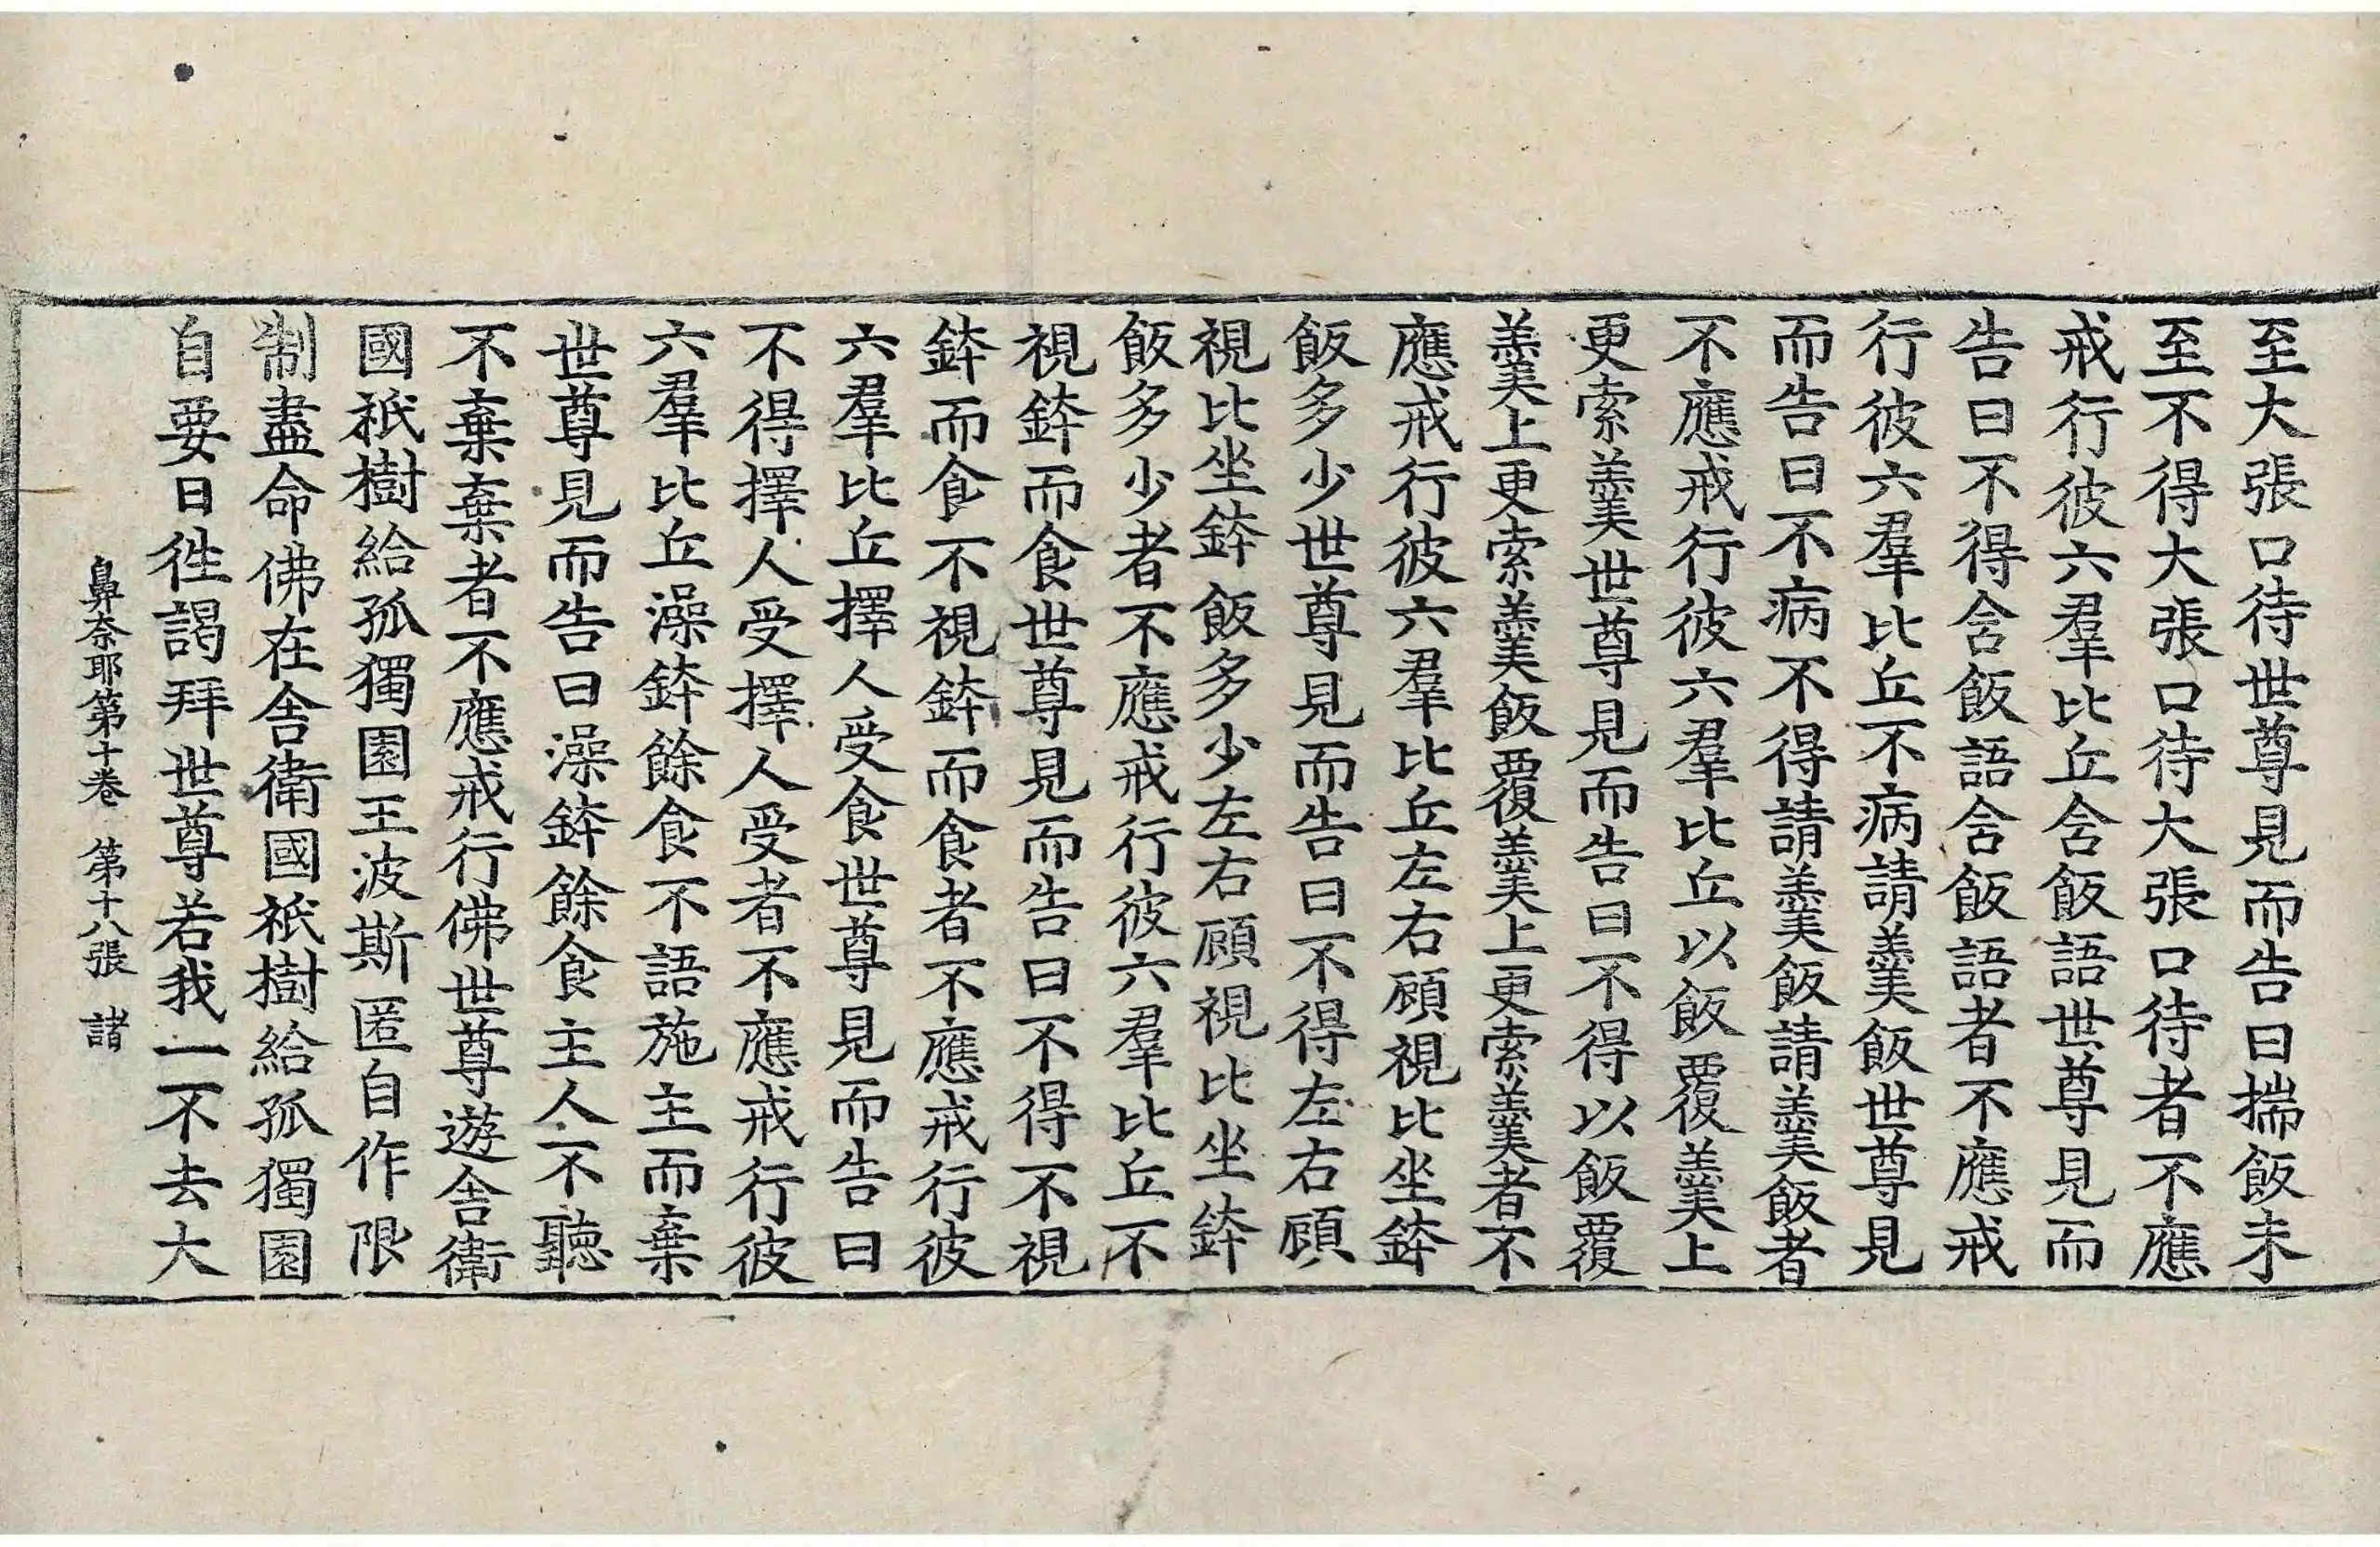 至大張口待世尊見而告曰揣飯未
至不得大張口待大張口待者不應
戒行彼六羣比丘含飯語世尊見而
告曰不得含飯語含飯語者不應戒
行彼六羣比丘不病請羹飯世尊見
而告曰不病不得請羹飯請羹飯者
不應戒行彼六羣比丘以飯覆羹上
更索羹世尊見而告曰不得以飯覆
羹上更索羹飯覆羹上更索羹者不
應戒行彼六羣比丘左右顧視比坐鉢
飯多少世尊見而告曰不得左右顧
視比坐鉢飯多少左右顧視比坐鉢
飯多少者不應戒行彼六羣比丘不
視鉢而食世尊見而告曰不得不視
鉢而食不視鉢而食者不應戒行彼
六羣比丘擇人受食世尊見而告曰
不得擇人受擇人受者不應戒行彼
六羣比丘澡鉢餘食不語施主而棄
世尊見而告曰澡鉢餘食主人不聽
不棄棄者不應戒行佛世尊遊舍衛
國祇樹給孤獨園王波斯匿自作限
制盡命佛在舍衛國祇樹給孤獨園
自要日徃謁拜世尊若我一不去大
鼻奈耶第十卷 第十八張 諸